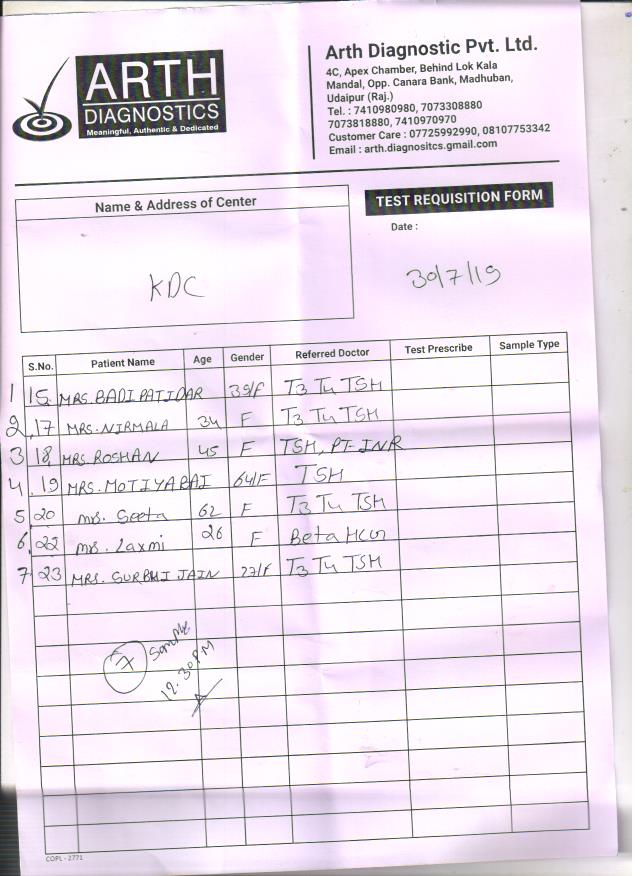 ARTH
DIAGNOSTICS
Meaningful, Authentic & Dedicated
Arth Diagnostic Pvt. Ltd.
4C, Apex Chamber, Behind Lok Kala
Mandal, Opp. Canara Bank, Madhuban,
Udaipur (Raj.)
Tel. : 7410980980, 7073308880
7073818880, 7410970970
Customer Care : 07725992990, 08107753342
Email : arth.diagnositcs.gmail.com
Name & Address of Center
KDC
TEST REQUISITION FORM
Date :
30/7/19
S.No. Patient Name Age Gender Referred Doctor Test Prescribe Sample Type
1 15 MRS. BADI PATIDAR 39/F T3 T4 TSH
2 17 MRS. NIRMALA 34 F T3 T4 TSH
3 18 MRS. ROSHAN 45 F TSH, PT-INR
4 19 MRS. MOTIYA BAI 64/F TSH
5 20 mrs. Seeta 62 F T3 T4 TSH
6 22 mrs. Laxmi 26 F Beta HCG
7 23 MRS. SURBHI JAIN 27/F T3 T4 TSH
7 Sample
12.30 PM
COPL - 2771